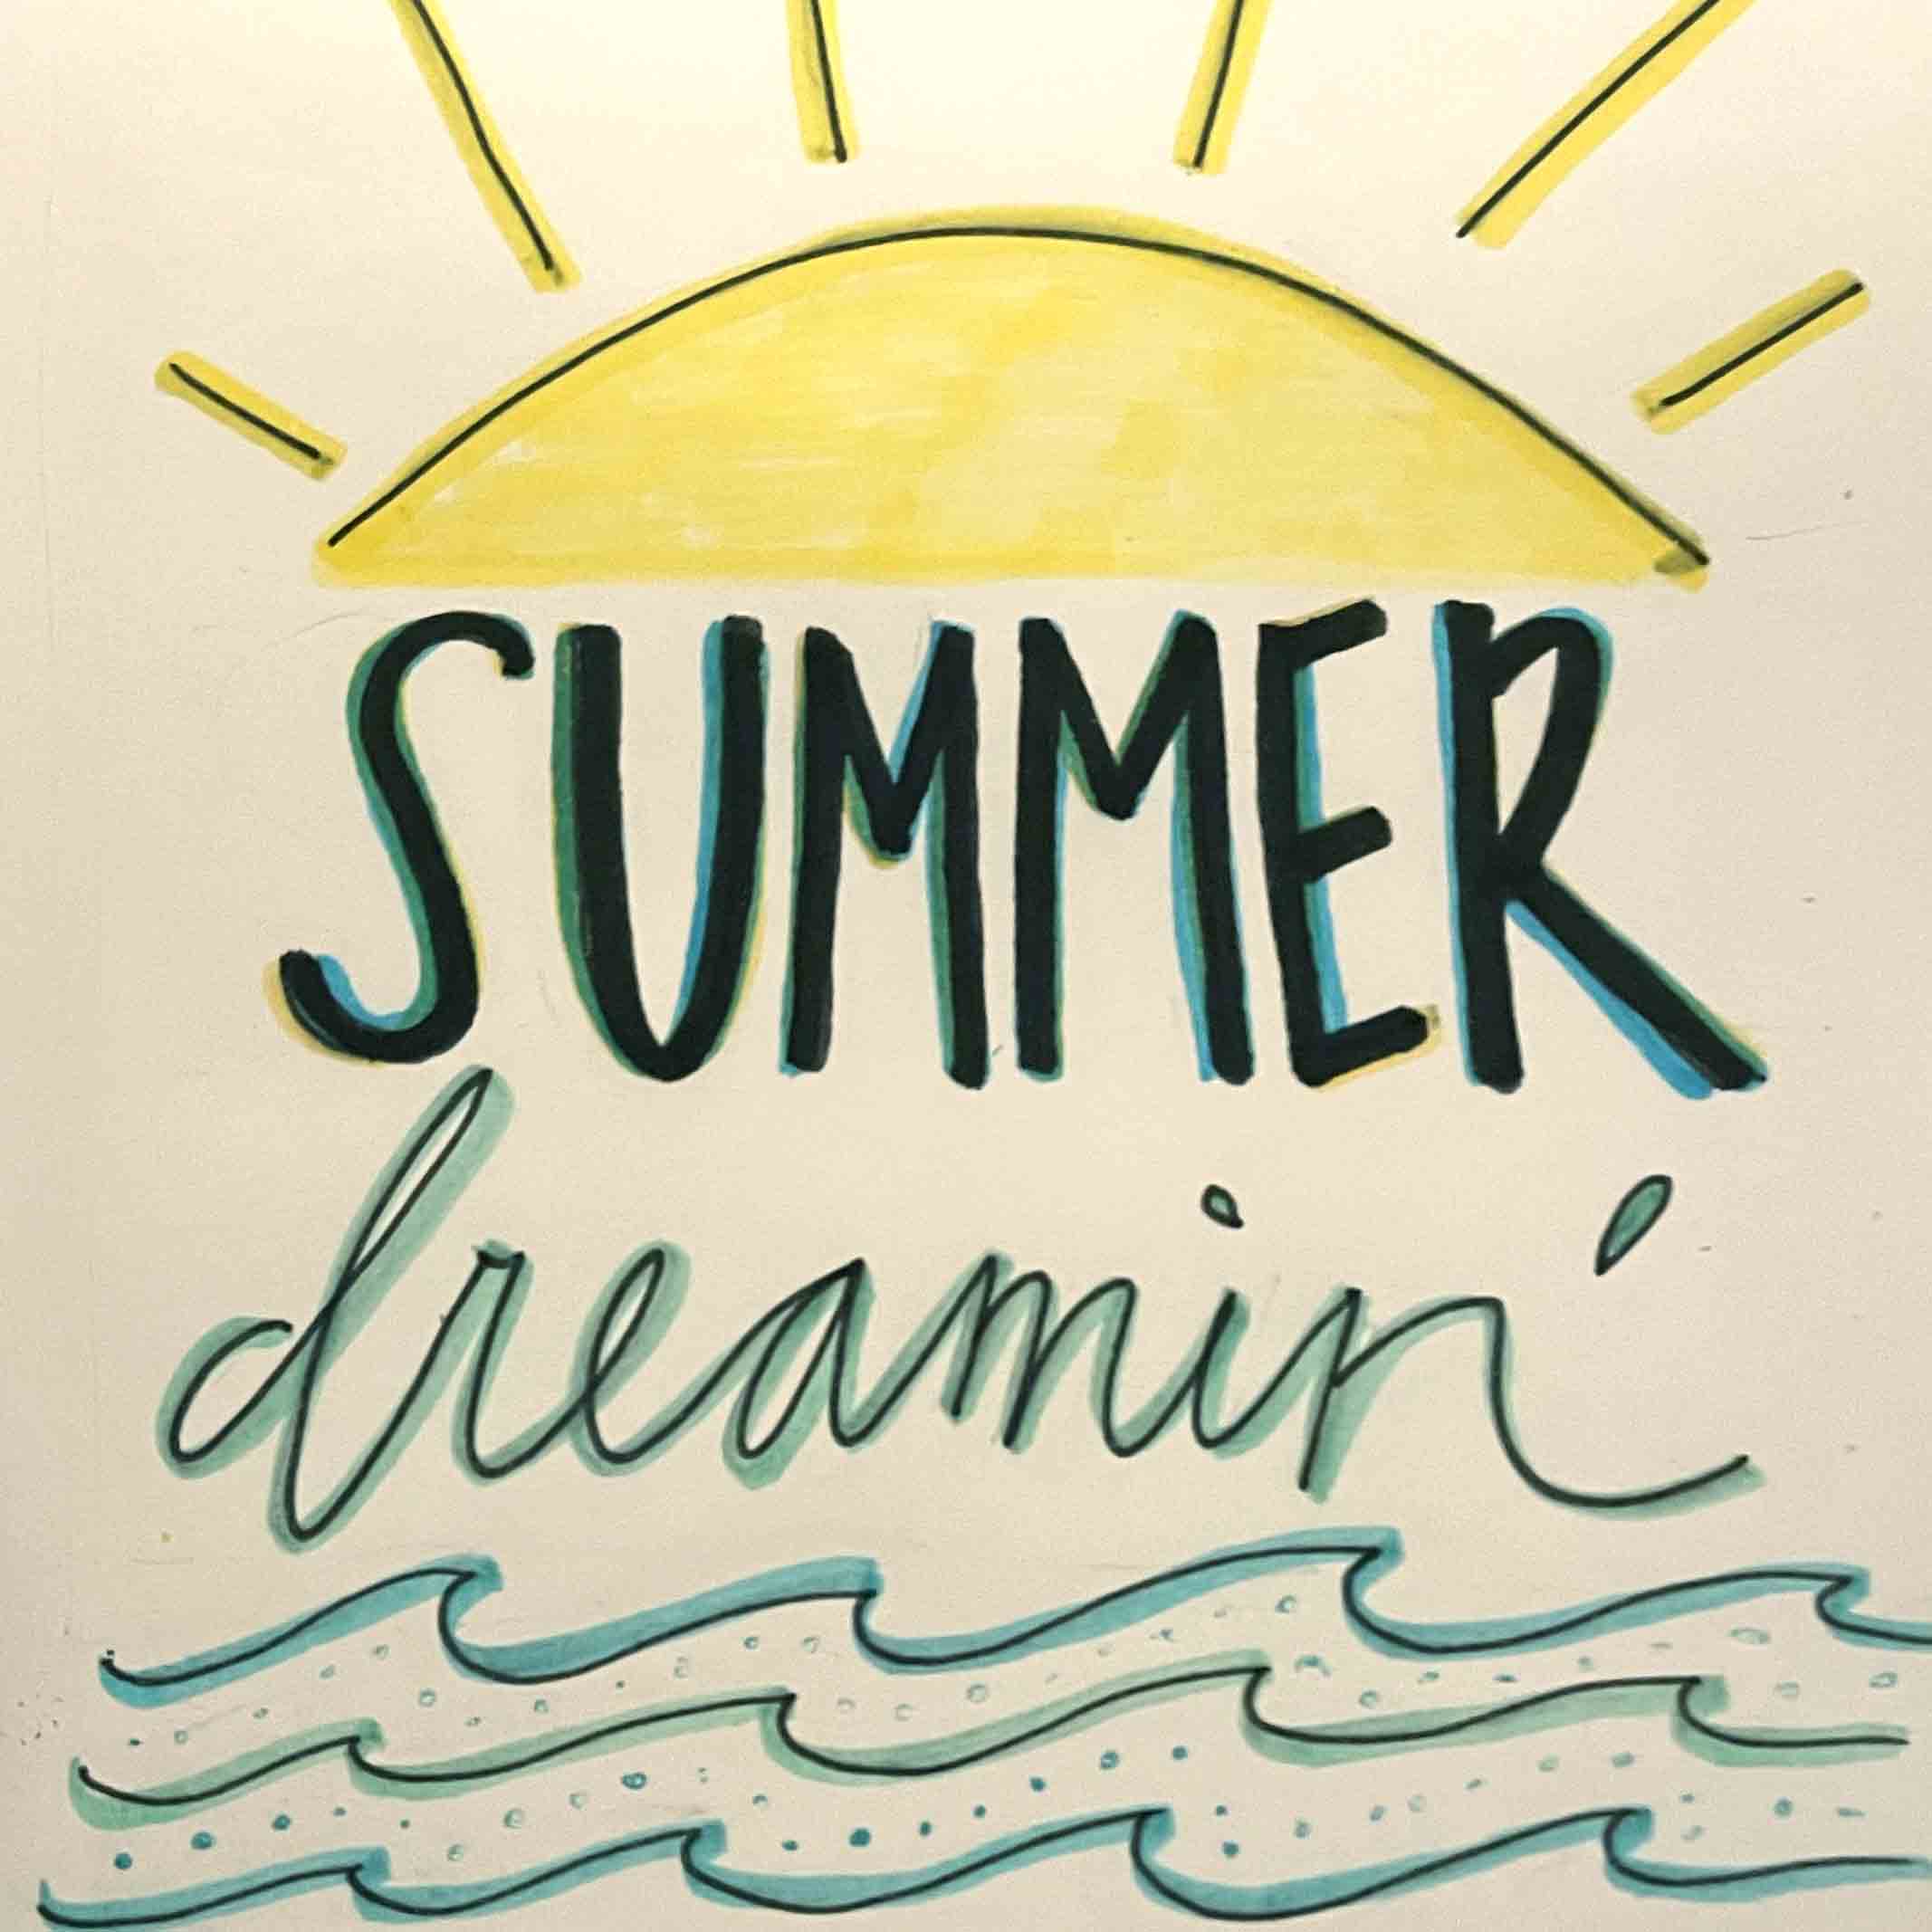 SUMMER
dreamin'